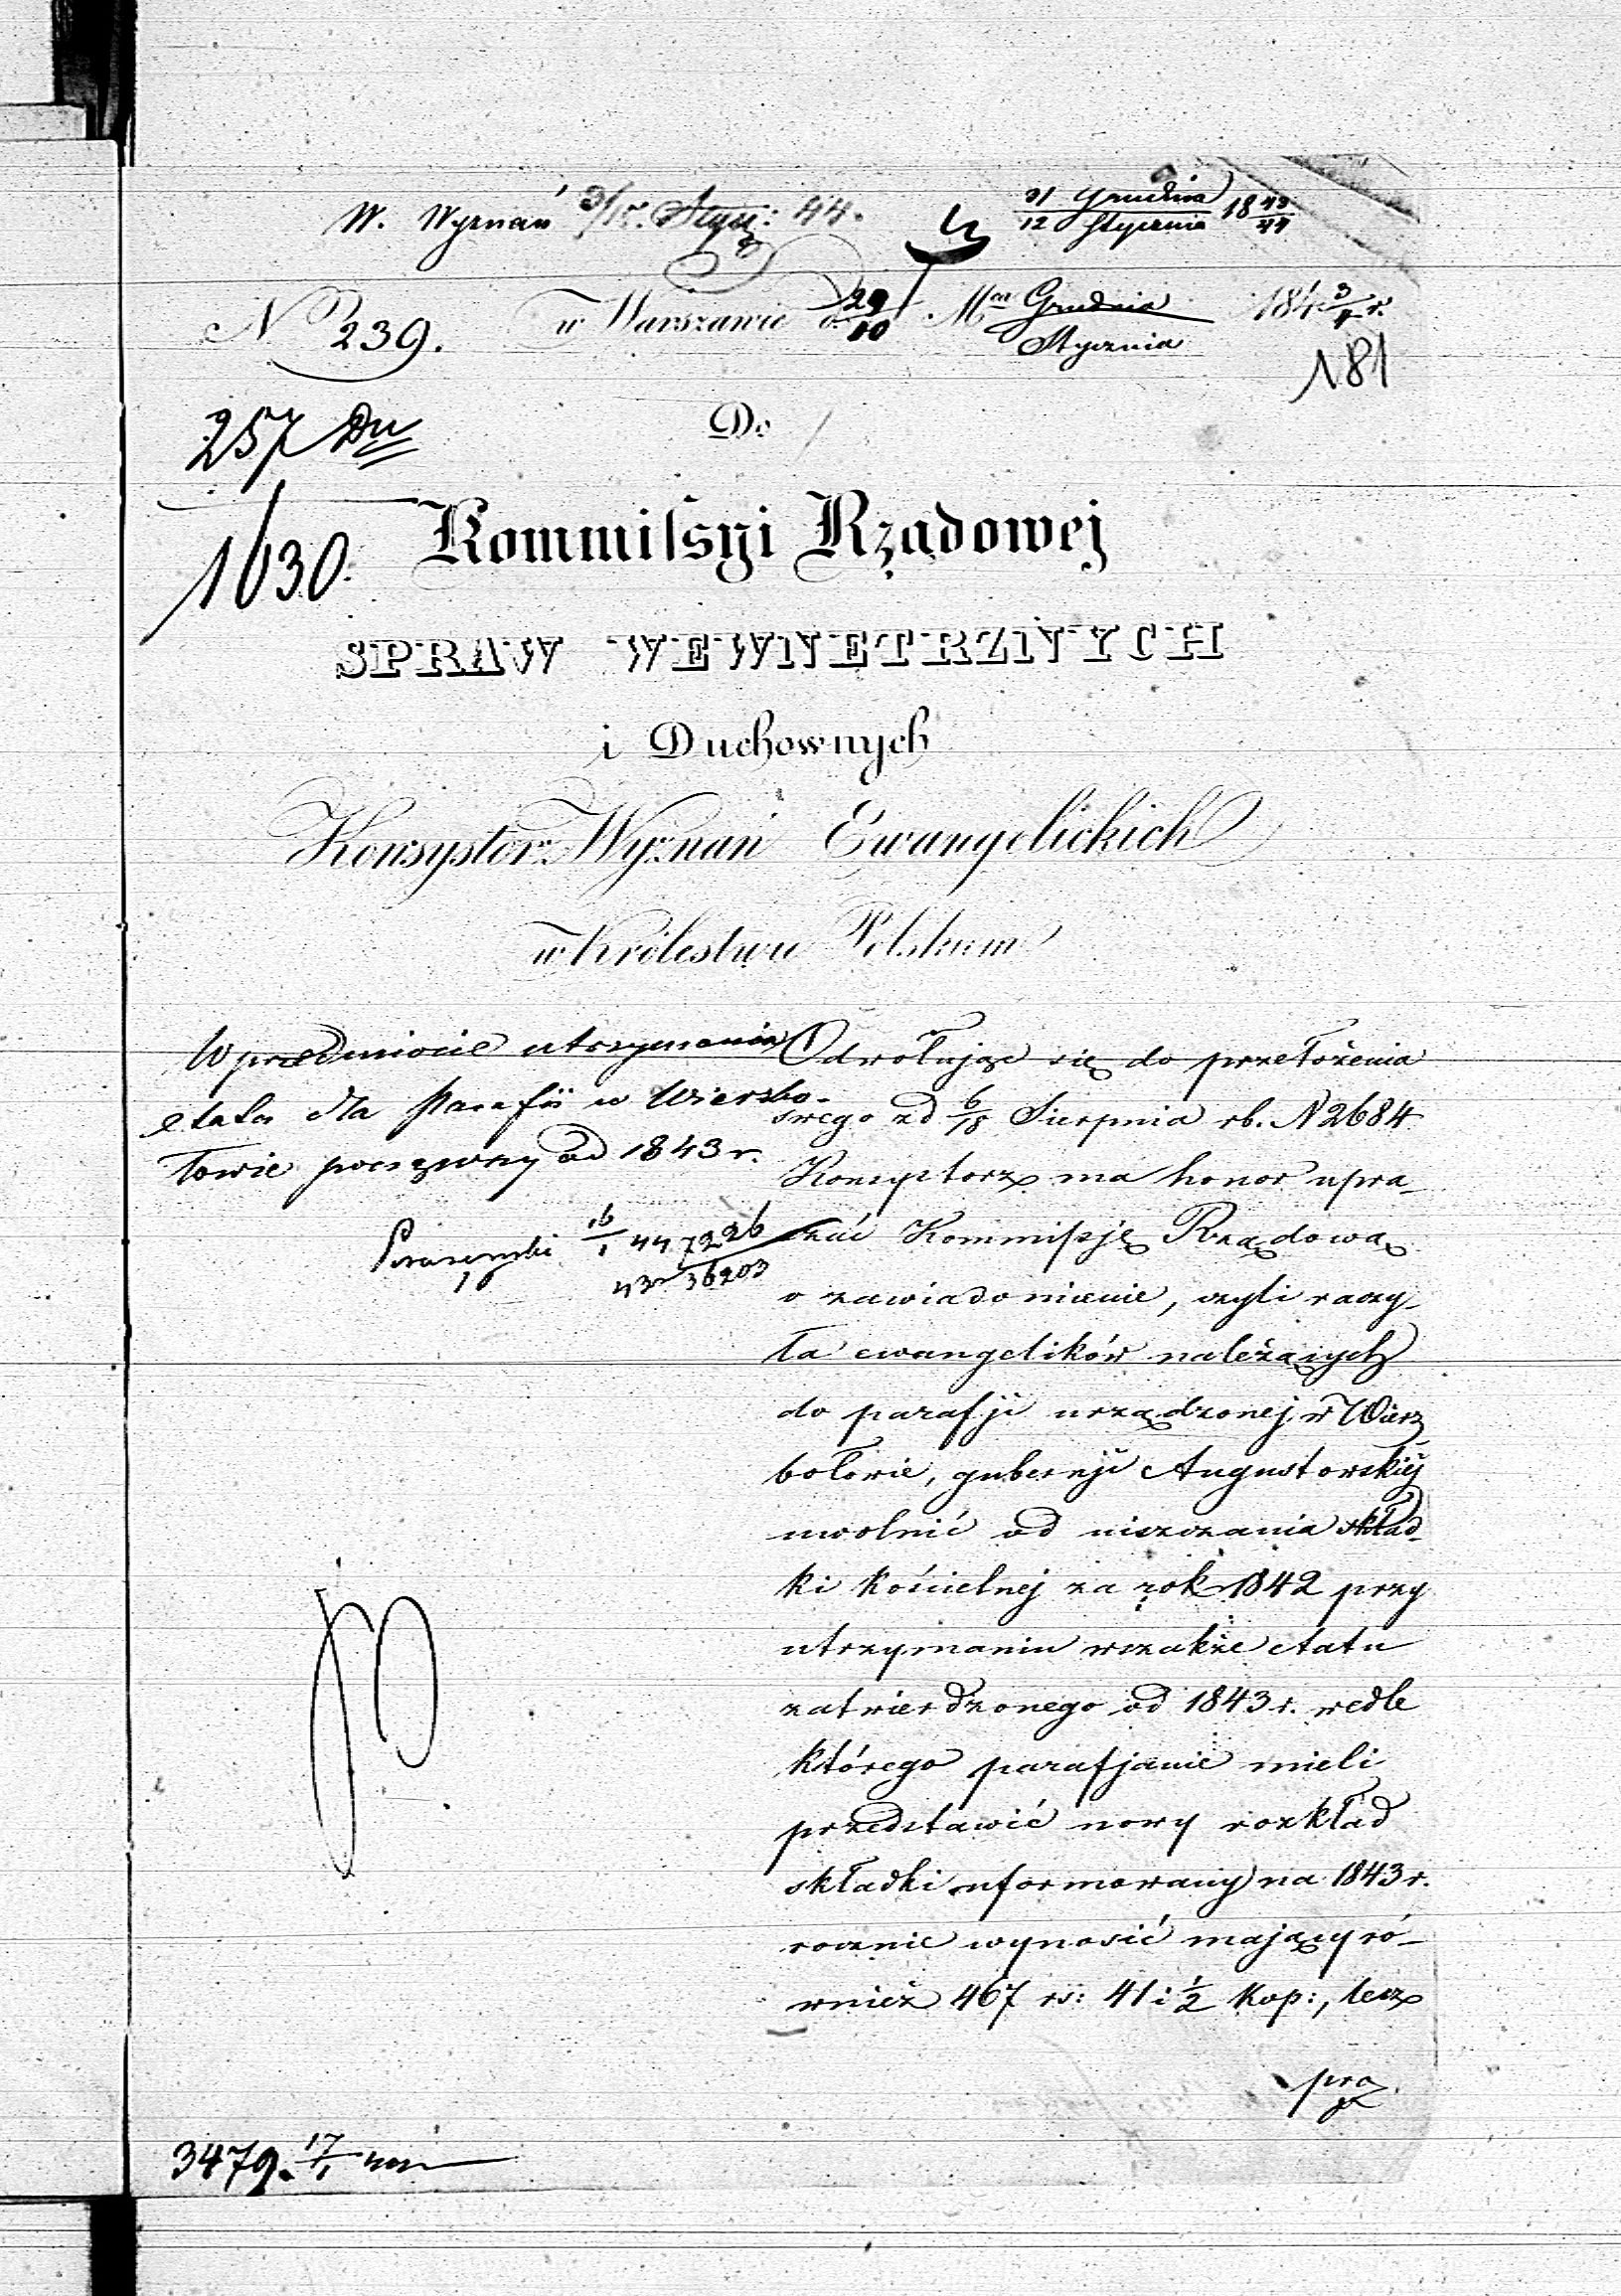 W. Wyznań 3/15 Stycz: 44.
31 Grudnia / 12 Stycznia 18 43/44
N 239. w Warszawie d. 29/10 Mca Grudnia / Stycznia 184 3/4 r.
181
257 Du
Do
1630.
Kommiſsyi Rządowej
SPRAW WEWNETRZNYCH
i Duchownych
Konsystorz Wyznań Ewangelickich
w Królestwie Polskiem
W przedmiocie utrzymania
etatu dla Parafii w Wierzbo-
łowie począwszy od 1843 r.
16/1 44 7226
43 36203
Odwołując się do przełożenia
swego zd 6/18 Sierpnia rb. N 2684
Konsystorz ma honor upra-
szać Kommissję Rządową
o zawiadomienie, czyli raczy-
ła ewangelików należących
do parafji urządzonej w Wierz
bołowie, gubernji Augustowskiej
uwolnić od uiszczania skład-
ki kościelnej za rok 1842 przy
utrzymaniu wszakże etatu
zatwierdzonego od 1843 r. wedle
którego parafjanie mieli
przedstawić nowy rozkład
składki uformowany na 1843 r.
rocznie wynosić mający ró-
wnież 467 rs: 41 i 1/2 kop:, lecz
pra
3479. 17/1